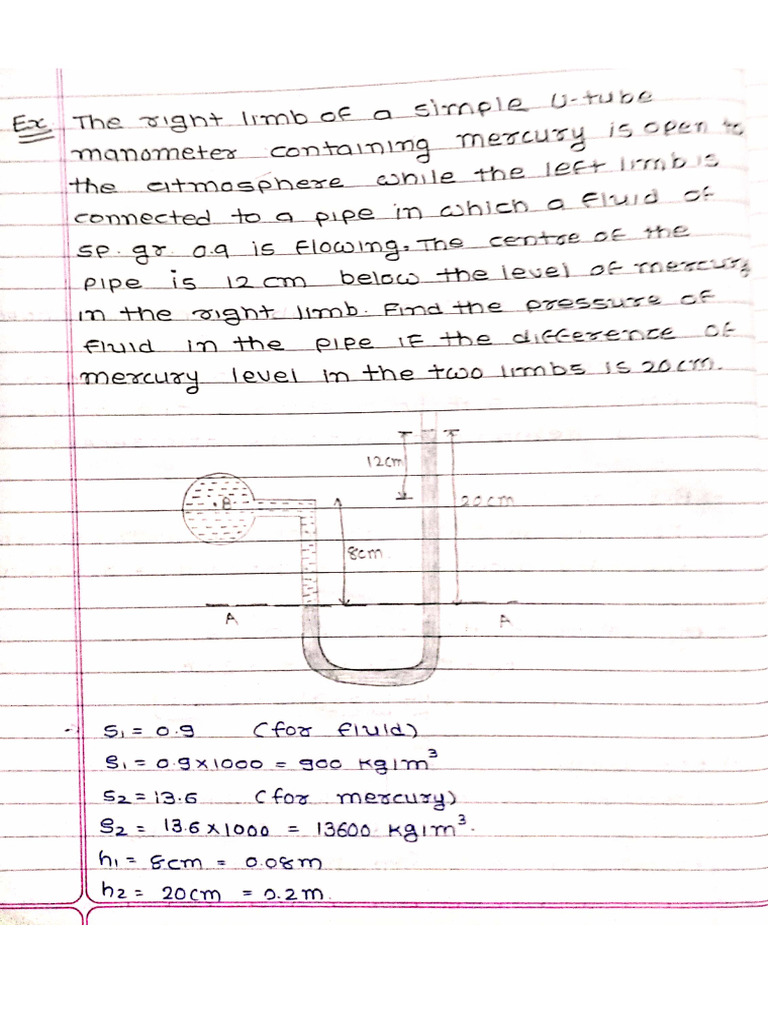 Ex The right limb of a simple U-tube
manometer containing mercury is open to
the atmosphere while the left limb is
connected to a pipe in which a fluid of
sp. gr. 0.9 is flowing. The centre of the
pipe is 12 cm below the level of mercury
in the right limb. Find the pressure of
fluid in the pipe if the difference of
mercury level in the two limbs is 20 cm.
12cm
B
20cm
8cm
A A
→ S₁ = 0.9 (for fluid)
ρ₁ = 0.9 × 1000 = 900 kg/m³
S₂ = 13.6 (for mercury)
ρ₂ = 13.6 × 1000 = 13600 kg/m³.
h₁ = 8cm = 0.08m
h₂ = 20cm = 0.2m.